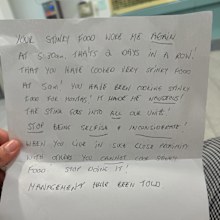 YOUR STINKY FOOD WOKE ME AGAIN
AT 5:  . THATS 2 DAYS IN A ROW!
THAT YOU HAVE COOKED VERY STINKY FOOD
AT 5AM! YOU HAVE BEEN COOKING STINKY
FOOD FOR MONTHS! IT MAKES ME NAUSEOUS!
THE STINK GOES INTO ALL OUR UNITS!
STOP BEING SELFISH & INCONSIDERATE!
WHEN YOU LIVE IN SUCH CLOSE PROXIMITY
WITH OTHERS YOU CANNOT COOK STINKY
FOOD. STOP DOING IT!
MANAGEMENT HAVE BEEN TOLD